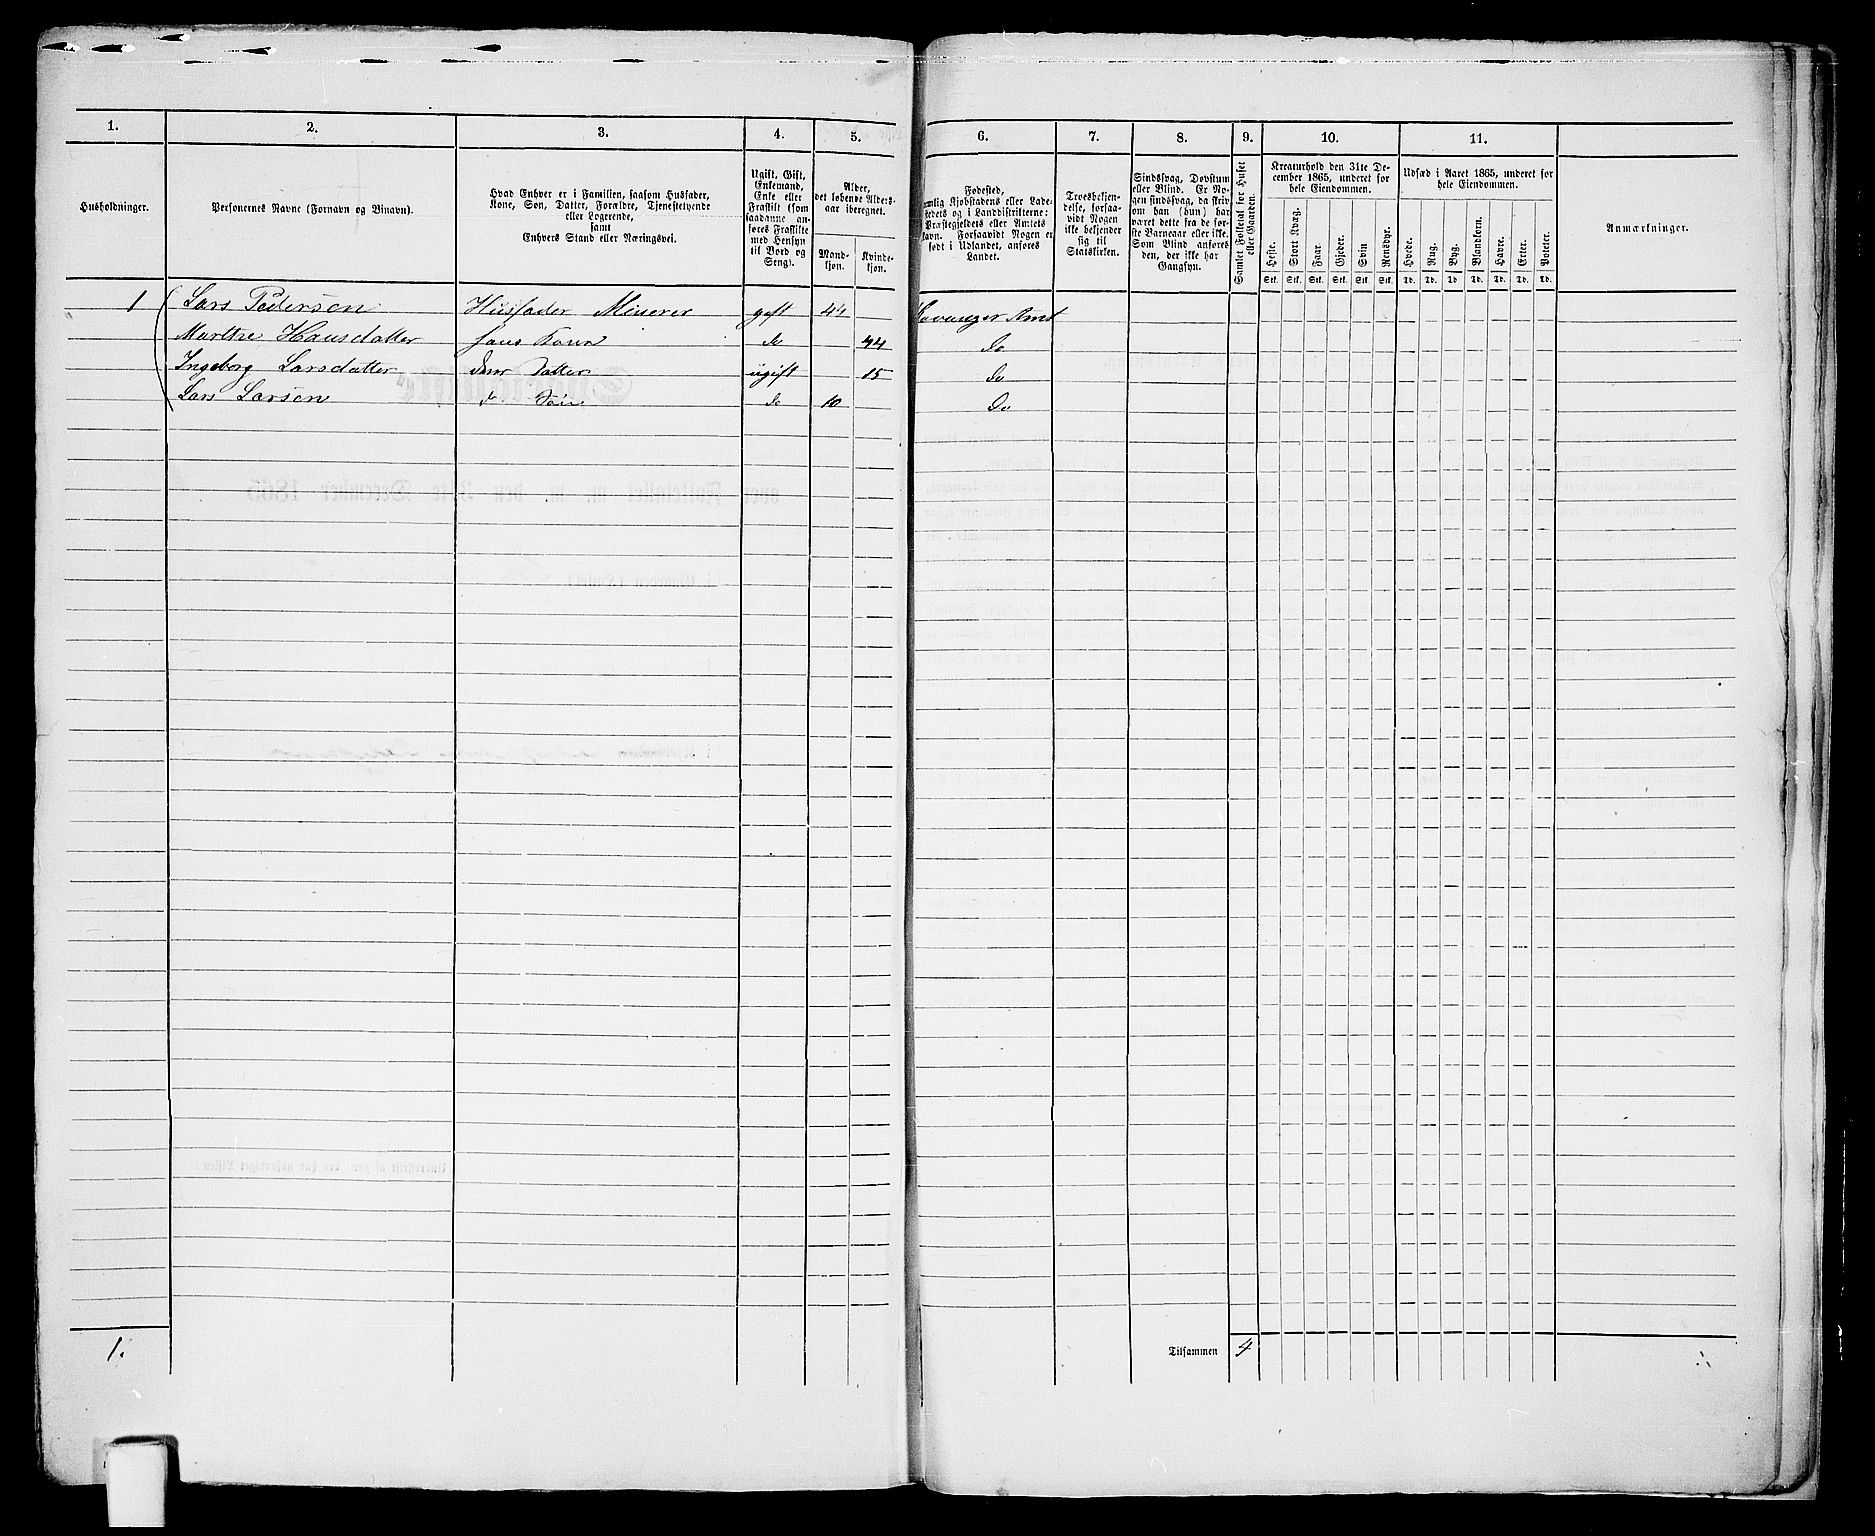 1. 2. 3. 4. 5. 6. 7. 8. 9. 10. 11.
Husholdninger.
Personernes Navne (Fornavn og Binavn).
Hvad Enhver er i Familien, saasom Husfader,
Kone, Søn, Datter, Forældre, Tjenestetyende
eller Logerende,
samt
Enhvers Stand eller Næringsvei.
Ugift, Gift,
Enkemand,
Enke eller
Fraskilt (som
saadanne an-
føres Fraskilte
med Hensyn
til Bord og
Seng).
Alder,
det løbende Alders-
aar iberegnet.
Mand-
kjøn.
Kvinde-
kjøn.
Fødested,
nemlig Kjøbstadens eller Lade-
stedets og i Landdistrikterne:
Præstegjeldets eller Amtets
Navn. Forsaavidt Nogen er
født i Udlandet, anføres
Landet.
Troesbekjen-
delse, forsaa-
vidt Nogen
ikke bekjender
sig til
Statskirken.
Sindssvag, Døvstum
eller Blind. Er No-
gen sindssvag, da skriv
om han (hun) har
været dette fra de før-
ste Barneaar eller ikke.
Som Blind anføres
den, der ikke har
Gangsyn.
Samlet Folketal for Huset
eller Gaarden.
Kreaturhold den 31te De-
cember 1865, underet for
hele Eiendommen.
Heste. Stort Kvæg. Faar. Gjeder. Svin Rensdyr.
Stk. Stk. Stk. Stk. Stk. Stk.
Udsæd i Aaret 1865, underet for
hele Eiendommen.
Hvede. Rug. Byg. Blandkorn. Havre. Erter. Poteter.
Td. Td. Td. Td. Td. Td. Td.
Anmærkninger.
1 Lars Pedersen Husfader Minerer gift 44 Stavanger Amt
Marthe Hansdatter hans Kone do 44 do
Ingeborg Larsdatter deres Datter ugift 15 do
Lars Larsen d Søn do 10 do
1. Tilsammen 4